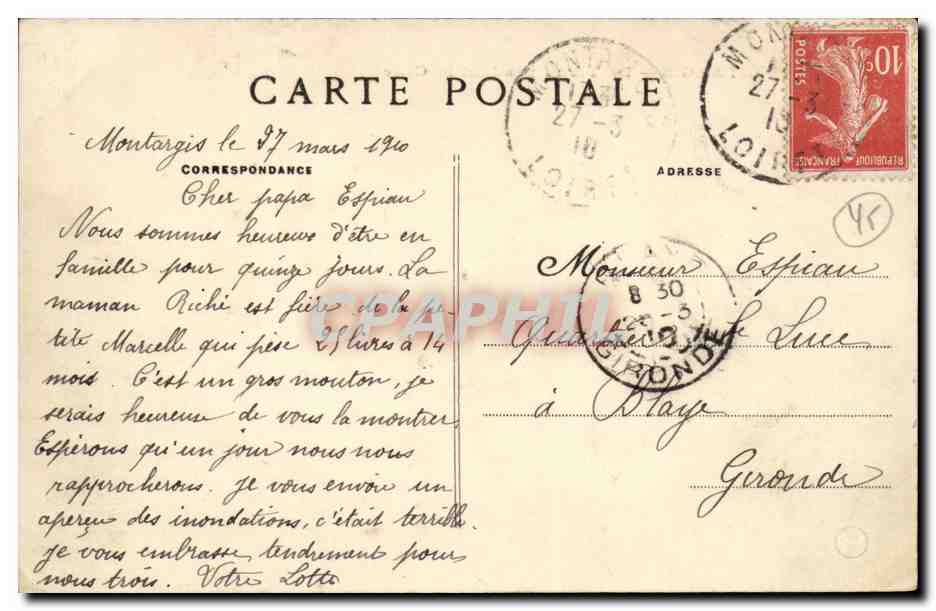 CARTE POSTALE
Montargis le 27 mars 1910
CORRESPONDANCE
Cher papa Espiau
Nous sommes heureux d'être en
famille pour quinze jours. La
maman Riché est fière de la pe-
tite Marcelle qui pèse 25 livres à 14
mois. C'est un gros mouton, je
serais heureuse de vous la montrer.
Espérons qu'un jour nous nous
rapprocherons. Je vous envoie un
aperçu des inondations, c'était terrible.
Je vous embrasse tendrement pour
nous trois. Votre Lotte
ADRESSE
Monsieur Espiau
Quartier St Luce
à Blaye
Gironde
MONTARGIS
27-3
10
LOIRET
MON
27-3
10
LOIRET
8 30
GIRONDE
10c
POSTES
REPUBLIQUE FRANÇAISE
45
CPAPHIL